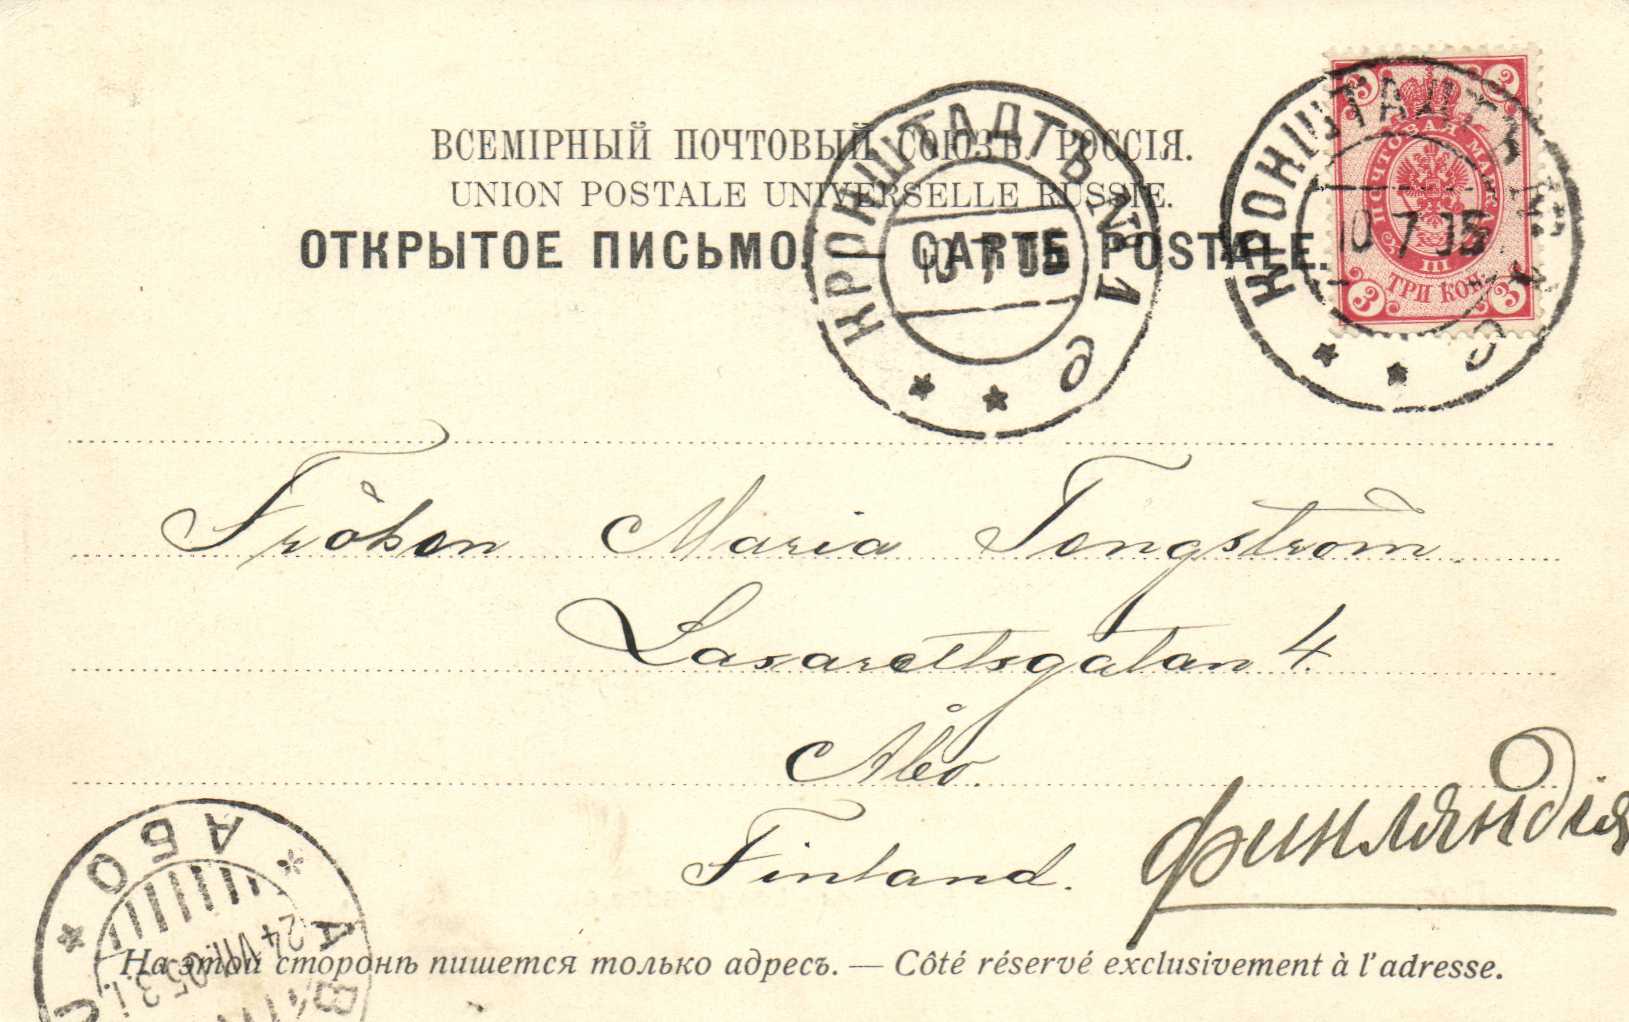 ВСЕМІРНЫЙ ПОЧТОВЫЙ СОЮЗЪ. РОССІЯ.
UNION POSTALE UNIVERSELLE RUSSIE.
ОТКРЫТОЕ ПИСЬМО. CARTE POSTALE.
КРОНШТАДТЪ № 1 е
10 7 05
КРОНШТАДТЪ № 1 е
10 7 05
ПОЧТОВАЯ МАРКА
III
ТРИ КОП.
3 3 3 3
Fröken Maria Tengström
Lasarettsgatan 4.
Åbo.
Finland. Финляндія
АБО
24 VII 05
На этой сторонѣ пишется только адресъ. — Côté réservé exclusivement à l'adresse.